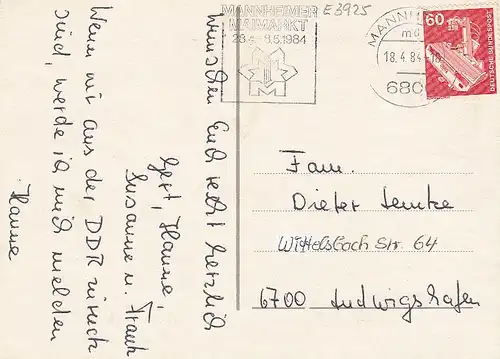 MANNHEIMER
MAIMARKT
28.4.-8.5.1984
E3925
MANNH
18.4.84-18
mc
680
60
DEUTSCHE BUNDESPOST
wünschen Euch recht herzlich
Gert, Hanne,
Susanne u. Frank
Wenn wir aus der DDR zurück
sind, werde ich mich melden
Hanne
Fam.
Dieter Lemke
Wittelsbach Str. 64
6700 Ludwigshafen